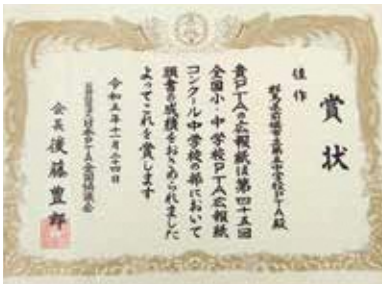 賞状
佳作
第五中学校PTA殿
貴PTAの広報紙は第四十五回
全国小・中学校PTA広報紙
コンクール中学校の部において
頭書の成績をおさめられました
よってこれを賞します
令和五年十一月二十四日
日本PTA全国協議会
会長 後藤豊郎